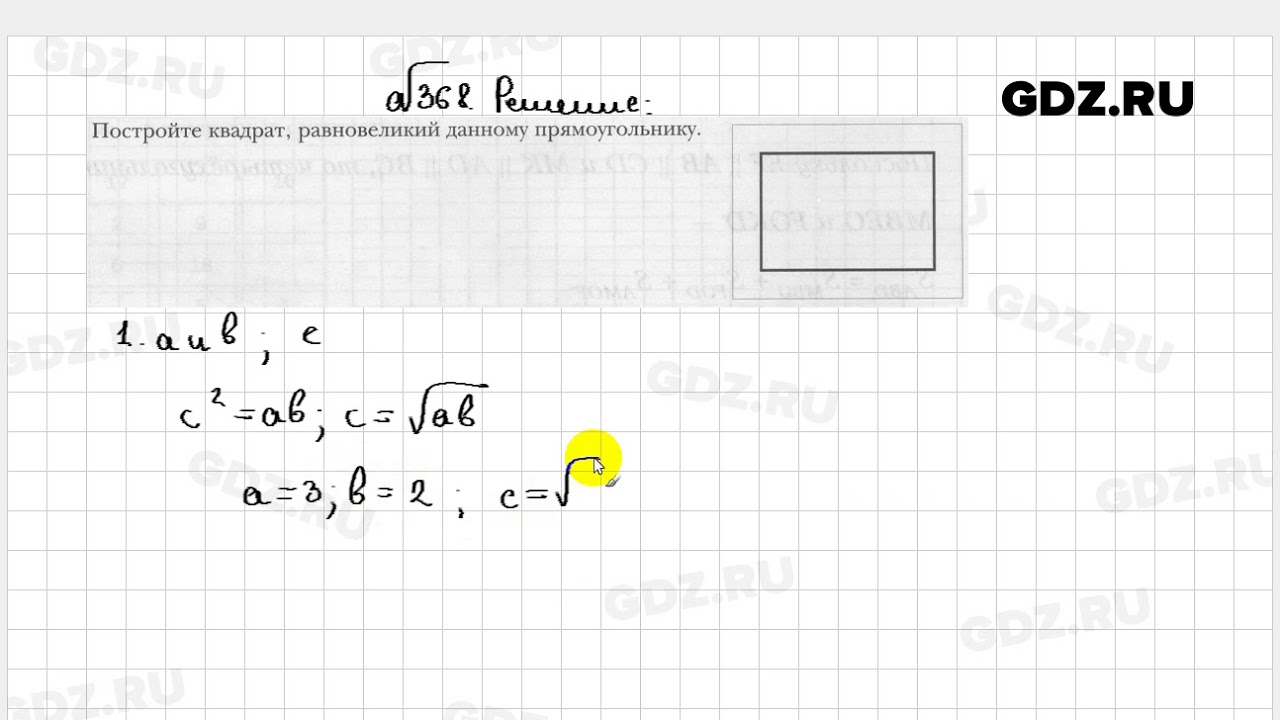 GDZ.RU
GDZ.RU
№368. Решение:
GDZ.RU
Постройте квадрат, равновеликий данному прямоугольнику.
1. а и в ; с
GDZ.RU
GDZ.RU
с² = ав; с = √ав
GDZ.RU
GDZ.RU
GDZ.RU
а = 3; в = 2 ; с = √
GDZ.RU
GDZ.RU
GDZ.RU